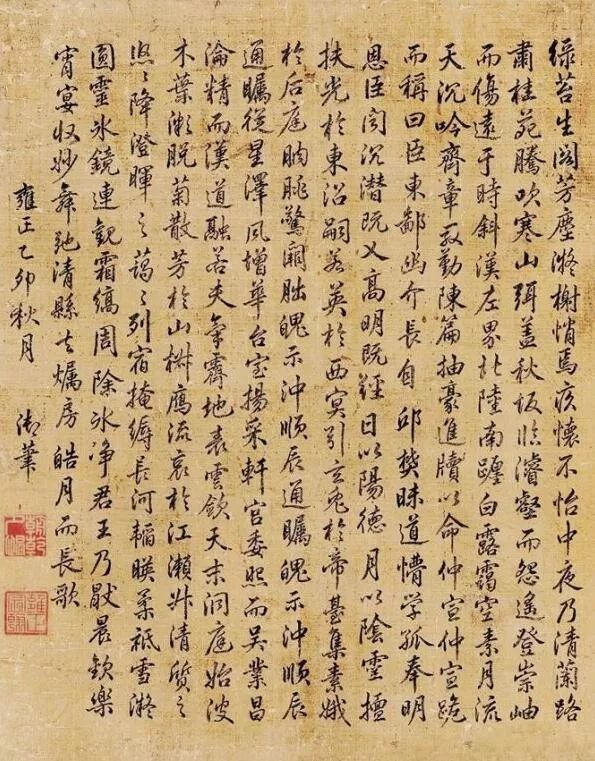 绿苔生阁芳塵凝榭悄焉疚懷不怡中夜乃清蘭路
肅桂苑騰吹寒山弭盖秋坂臨濬壑而怨遙登崇岫
而傷遠于時斜漢左界北陸南躔白露靄空素月流
天沉吟齊章殷勤陳篇抽豪進牘以命仲宣仲宣跪
而稱曰臣東鄙幽介長自邱樊昧道懵學孤奉明
恩臣聞沉潛既义高明既經日以陽德月以陰靈擅
扶光於東沼嗣若英於西冥引玄兔於帝臺集素娥
於后庭朒脁驚闕朏魄示沖順辰通矚魄示沖順辰
通矚從星澤風增華台室揚采軒宫委照而吴業昌
淪精而漢道融若夫氣霽地表雲歛天末洞庭始波
木葉微脱菊散芳於山椒鴈流哀於江瀨升清質之
悠〻降澄暉之藹〻列宿掩縟長河韜暎柔祇雪凝
圓靈水鏡連觀霜縞周除冰净君王乃厭晨歡樂
宵宴收妙舞弛清縣去燭房皓月而長歌
雍正乙卯秋月 御筆
朝乾夕惕
雍正宸翰